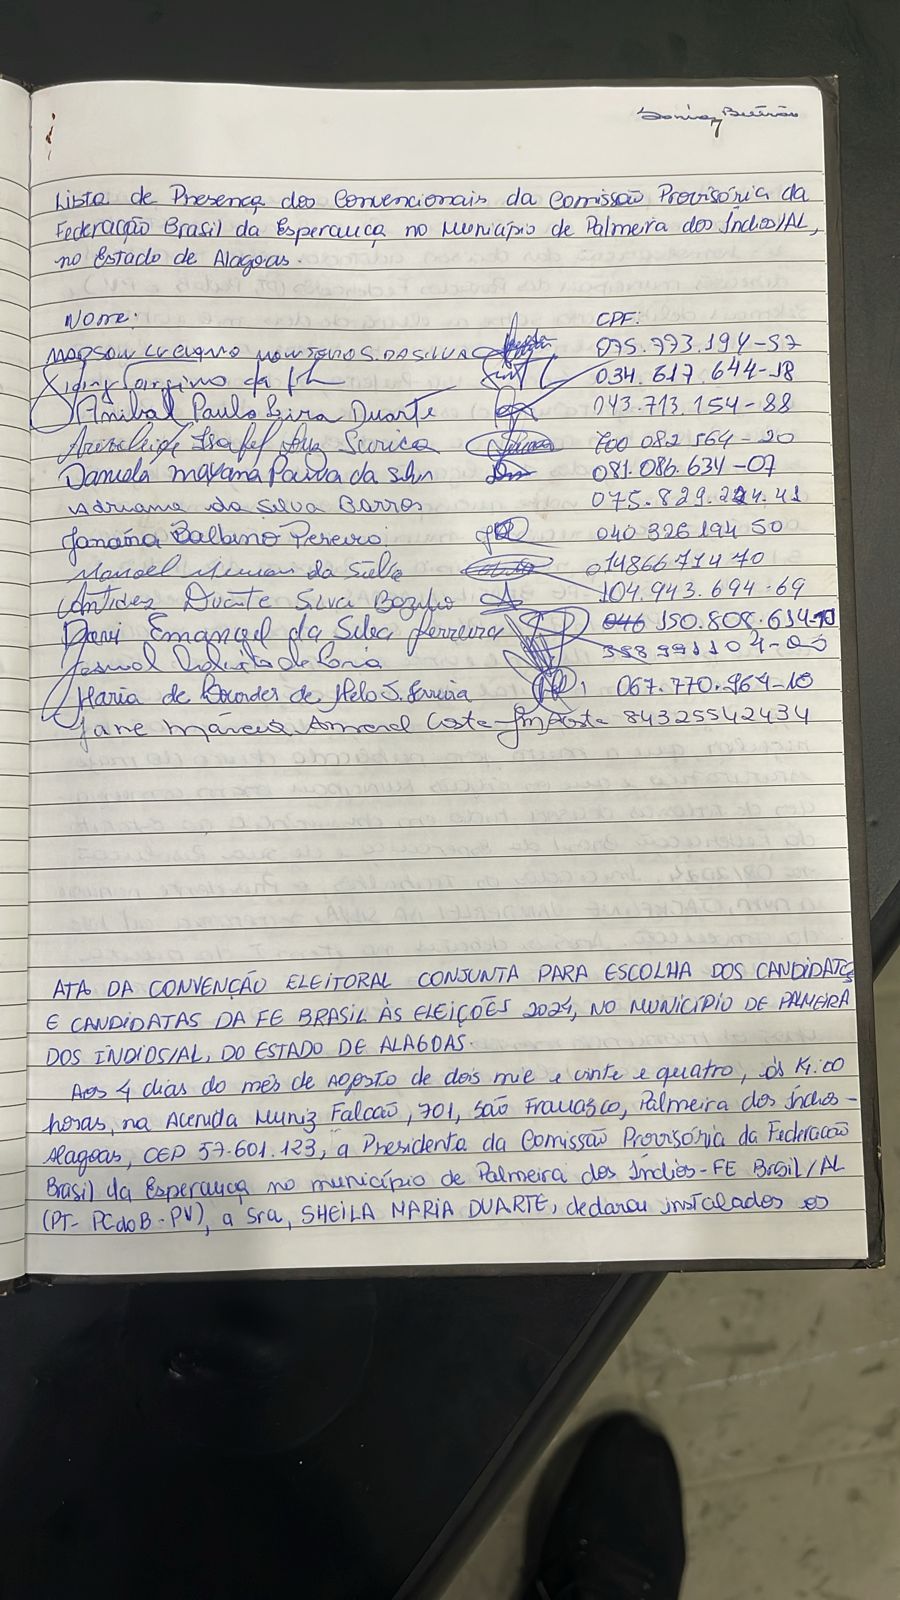 Lista de Presença dos Convencionais da Comissão Provisória da
Federação Brasil da Esperança no Município de Palmeira dos Índios/AL,
no Estado de Alagoas.
Nome: CPF:
DA SILVA 075.773.194-57
da 034.617.644-18
Anibal Paulo Lira Duarte 043.713.154-88
Izabel 700 082 564-20
Daniela Mayana Paiva da Silva 081.086.634-07
Adriana da Silva Barros 075.829.41
Janaína Balbino Pereira 040 326 194 50
Manoel da Silva 014866 714 70
Antides Duarte Silva 104.943.694-69
Davi Emanoel da Silva Ferreira 046 150.808.614-
de
Maria de Lourdes de Melo S. Ferreira 067.770.964-10
Jane Márcia Amaral Costa 84325542434
ATA DA CONVENÇÃO ELEITORAL CONJUNTA PARA ESCOLHA DOS CANDIDATOS
E CANDIDATAS DA FE BRASIL ÀS ELEIÇÕES 2024, NO MUNICÍPIO DE PALMEIRA
DOS ÍNDIOS/AL, DO ESTADO DE ALAGOAS.
Aos 4 dias do mês de Agosto de dois mil e vinte e quatro, às
horas, na Avenida Muniz Falcão, 701, São Francisco, Palmeira dos Índios-
Alagoas, CEP 57.601.123, a Presidenta da Comissão Provisória da Federação
Brasil da Esperança no município de Palmeira dos Índios-FE Brasil/AL
(PT- PCdoB-PV), a Sra, SHEILA MARIA DUARTE, declarou instalados os